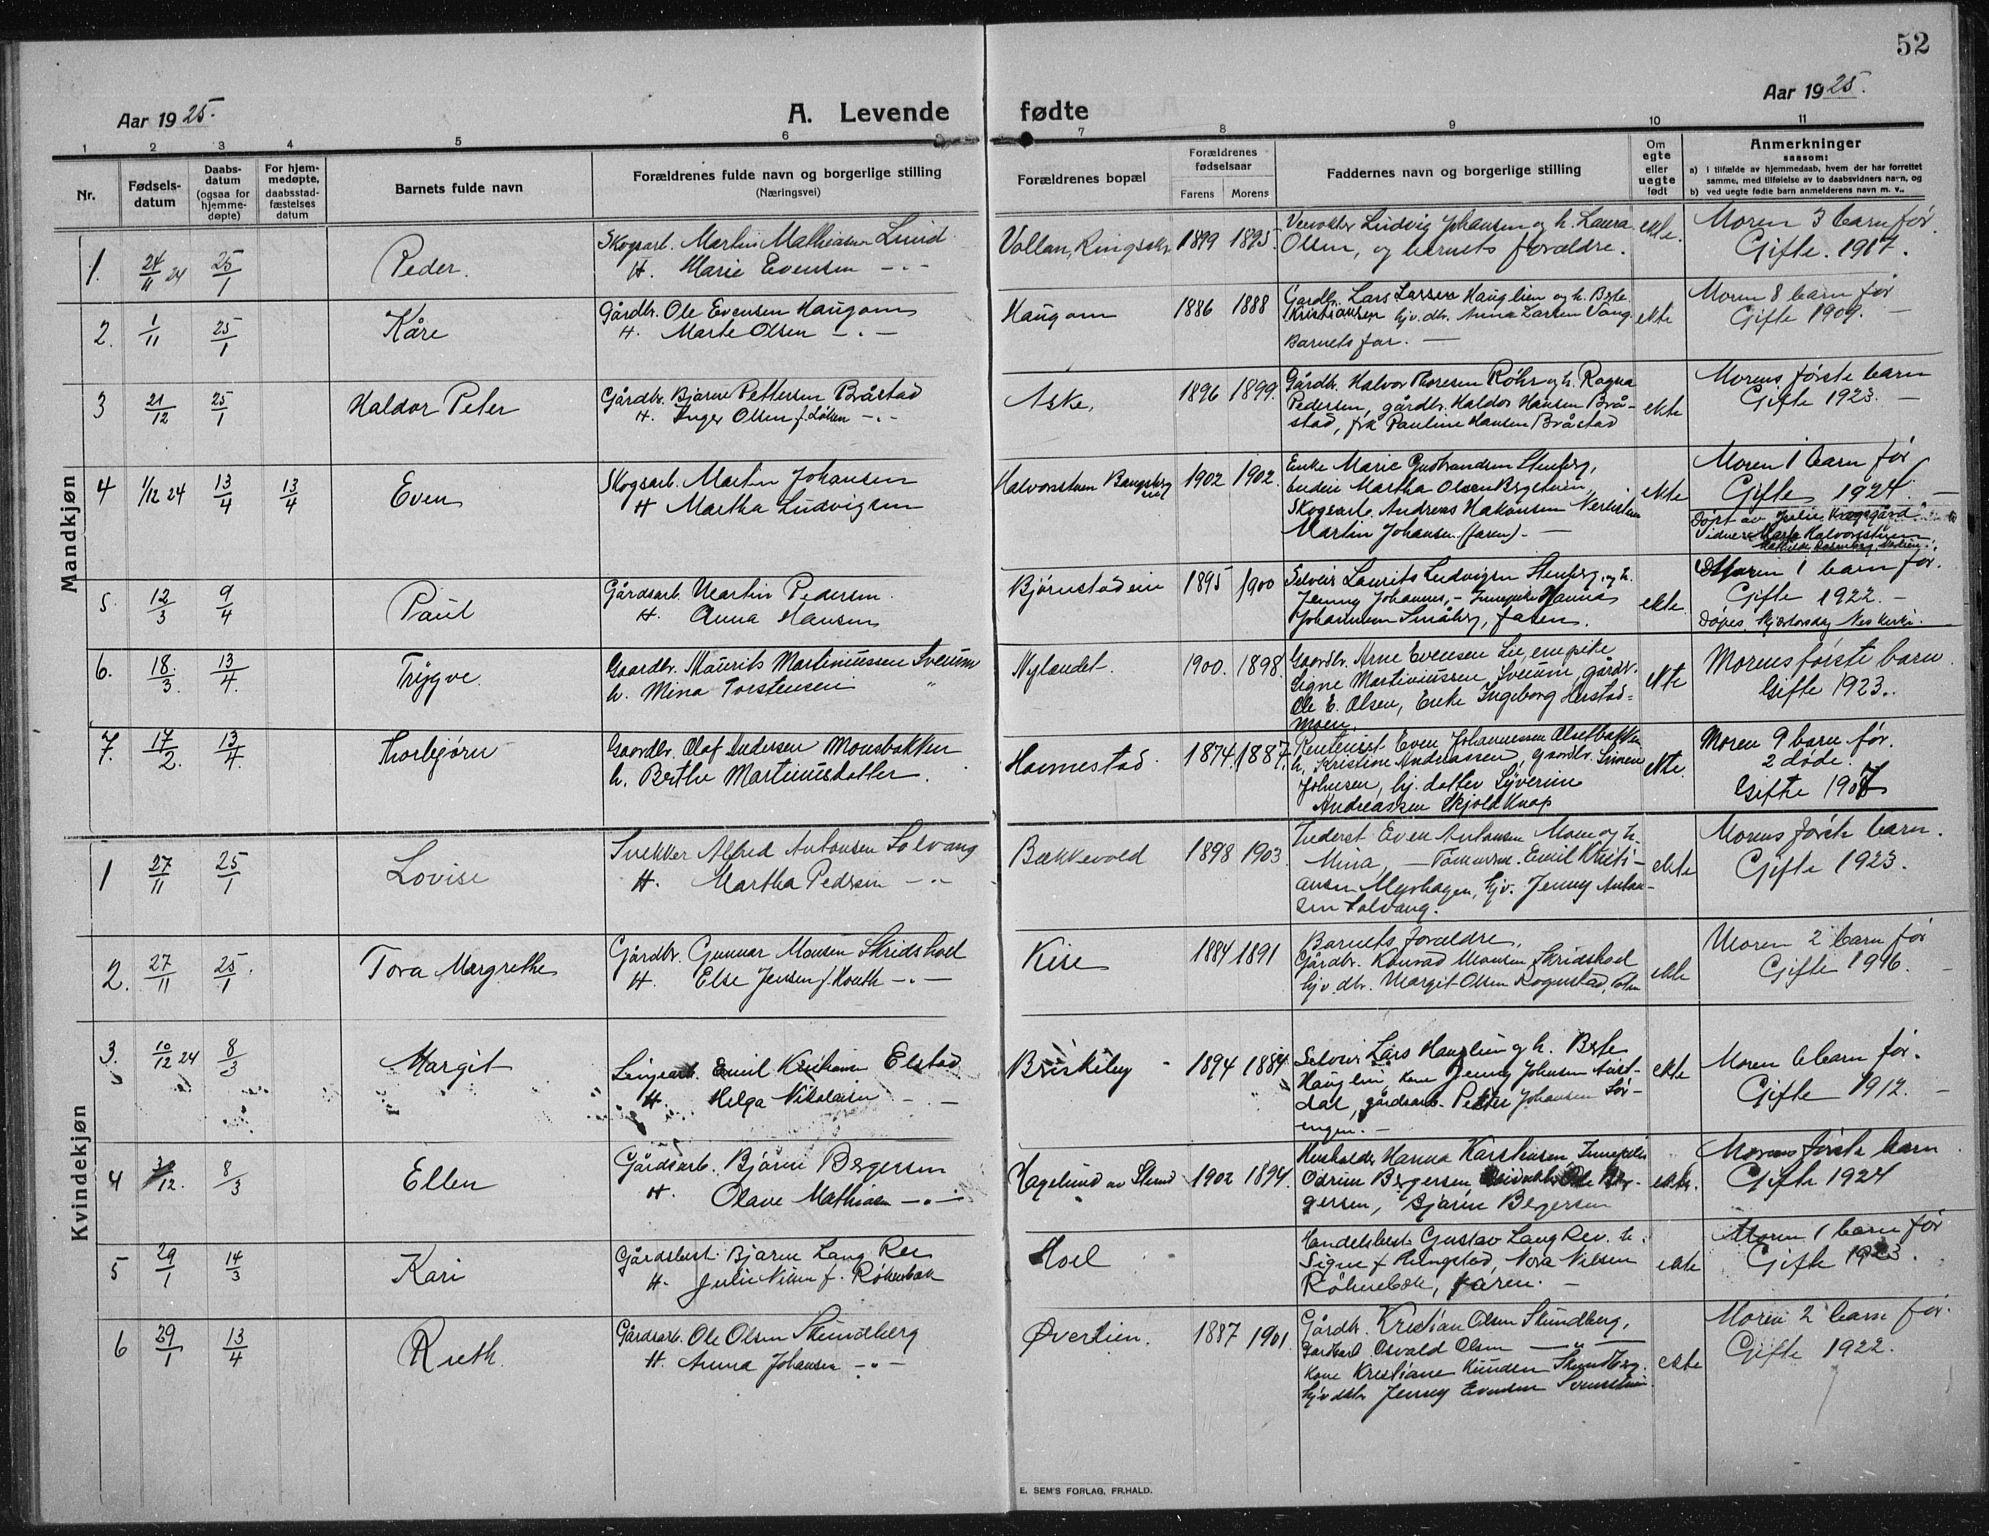 52
Aar 1925.
A. Levende fødte
Aar 1925.
1 2 3 4 5 6 7 8 9 10 11
Nr.
Fødsels-
datum
Daabs-
datum
(ogsaa for
hjemme-
døpte)
For hjem-
medøpte,
daabsstad-
fæstelses
datum
Barnets fulde navn
Forældrenes fulde navn og borgerlige stilling
(Næringsvei)
Forældrenes bopæl
Forældrenes
fødselsaar
Farens Morens
Faddernes navn og borgerlige stilling
Om
egte
eller
uegte
født
Anmerkninger
saasom:
a) I tilfælde av hjemmedaab, hvem der har forrettet
samme, med tilføielse av to daabsvidners navn, og
b) ved uegte fødte barn anmelderens navn m. v..
Mandkjøn
1. 24/11 24 25/1 Peder.
Skogsarb. Martin Mathiasen Lund
H. Marie Evensen -"-
Vollan, Ringsakr 1899 1895.
Ludvig Johansen og h. Laura
Olsen, og barnets forældre.
ekte.
Moren 3 barn før.
Gifte. 1917.
2. 1/11 25/1 Kåre
Gårdbr. Ole Evensen Haugom
H. Marte Olsen -"-
Haugom 1886 1888
Gårdbr. Lars Larsen Hauglien og h. Berte
Kristiansen hjv. dtr. Anna Larsen Vang
Barnets far. —
ekte
Moren 8 barn før
Gifte 1909. —
3 21/12 25/1 Haldor Peter
Gårdbr. Bjarne Pettersen Bråstad
H. Inger Olsen f. Løken -"-
Aske, 1896 1899.
Gårdbr. Halvor Thoresen Røhr og h. Ragna
Pedersen, gårdbr. Haldor Hansen Brå-
stad, frk Pauline Hansen Bråstad
ekte
Morens første barn
Gifte 1923. —
4 1/12 24 13/4 13/4 Even
Skogsarb. Martin Johansen
H Martha Ludvigsen
Halvorsstuen 1902 1902.
Enke Marie Gudbrandsen Stenberg,
Martha Olsen Bergsteien
Skogsarb. Andreas Hakansen
Martin Johansen (faren). —
ekte
Moren 1 barn før
Gifte 1924. —
Døpt av Julie
Vidner: Halvorsstuen
5. 12/3 9/4 Paul
Gårdsarb. Martin Pedersen
H. Anna Hansen
Bjørnstadeie 1895 1900
Selveier Laurits Ludvigsen Stenberg, og h.
Jenny Johannes, - Hanna
Johannesen Småberg, faren.
ekte.
Moren 1 barn før.
Gifte 1922. —
Døpes Skjærtorsdag Nes Kirke.
6. 18/3. 13/4. Trygve
Gaardbr. Maurits Martiniussen Sveum
h. Mina Torstensen "
Nylandet. 1900. 1898.
Gaardbr. Arne Evensen Lie
Signe Martiniussen Sveum, gårdbr.
Ole E. Olsen, Enke Ingeborg Herstad-
moen.
ekte
Morens første barn.
Gifte 1923.
7. 17/2. 13/4. Thorbjørn
Gaardbr. Olaf Andersen Monsbakken
h. Berthe Martinusdatter.
Hommestad. 1874. 1887.
Rentenist Even Johannessen Alsetbakken
h. Kristine Andreassen, gaardbr. Simen
Johnsen, hj. datter Syverine
Andreassen Skjold Knap
ekte.
Moren 9 barn før.
2 døde.
Gifte 1907
Kvindekjøn
1 27/11 25/1 Lovise
Alfred Antonsen Solvang
H. Martha Pedersen -"-
Bækkevold 1898 1903.
Even Antonsen Moen og h.
Mina, — Tømmerm. Emil Kristi-
ansen Myrhagen, hjv. Jenny Anton-
sen Solvang.
ekte
Morens første barn.
Gifte 1923.
2. 27/11 25/1. Tora Margrethe
Gårdbr. Gunnar Monsen Skridshol
H. Else Jensen f. -"-
Kise 1884 1891
Barnets forældre,
Gårdbr. Konrad Monsen Skridshol
hjv. dtr. Margit Olsen
ekte
Moren 2 barn før
Gifte 1916. —
3. 10/12 24 8/3 Margit
Emil Kristiansen Elstad
H. Helga Nikolaisen -"-
Briskeby 1894 1884.
Selveier Lars Hauglien og h. Berte
Hauglien, kone Jenny Johnsen Aust-
dal, gårdsarb. Petter Johansen Sør-
engen. —
ekte
Moren 6 barn før.
Gifte 1912. —
4 /12. 8/3 Ellen
Gårdsarb. Bjarne Bergersen
H. Olave Mathisen -"-
Hagelund av 1902 1894.
Hanna Karstensen
Odrun Bergersen Ole Ber-
gersen, Bjarne Bergersen
ekte.
Morens første barn
Gifte 1924
5 29/1 14/3 Kari
Gårdsbest. Bjarne Lang Ree
H. Julie Nilsen f. Røhnebæk
Hoel
Handelsbest. Gustav Lang Ree. h.
Signe f Nora Nilsen
Røhnebæk, faren. —
ekte
Moren 1 barn før
Gifte 1923.
6 29/1 13/4 Ruth.
Gårdsarb. Ole Olsen Skundberg
H. Anna Johansen -"-
Øverlien. 1887 1901.
Gårdbr. Kristian Olsen Skundberg,
Gårdsarb Osvald Olsen —"—
Kone Kristiane Knudsen Skundberg.
Hjv dtr Jenny Evensen
ekte
Moren 2 barn før.
Gifte 1922.
E. SEM'S FORLAG, FR.HALD.